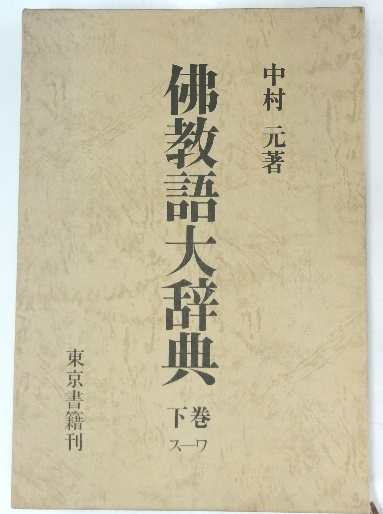 中村 元著
佛教語大辞典
下巻
ス―ワ
東京書籍刊